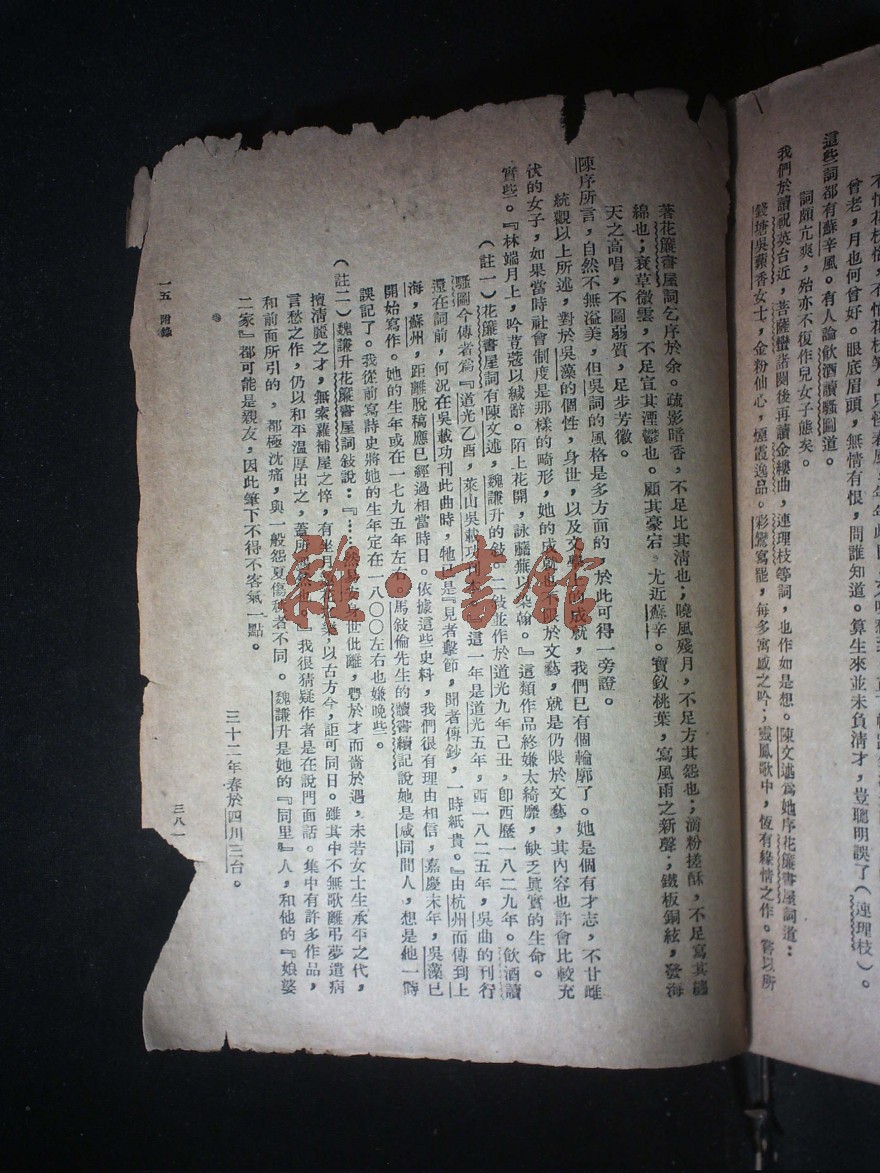 曾老，月也何曾好。眼底眉頭，無情有恨，問誰知道。算生來並未負清才，豈聰明誤了（連理枝）。
這些詞都有蘇辛風。有人論飲酒讀騷圖道：
詞頗亢爽，殆亦不復作兒女子態矣。
我們於讀祝英台近，菩薩蠻諸闋後再讀金縷曲，連理枝等詞，也作如是想。陳文述為她序花簾書屋詞道：
錢塘吳蘋香女士，金粉仙心，煙霞逸品。彩鸞寫罷，每多寓感之吟；靈鳳歌中，恆有緣情之作。嘗以所
著花簾書屋詞乞序於余。疏影暗香，不足比其清也；曉風殘月，不足方其怨也；滴粉搓酥，不足寫其纏
綿也；衰草微雲，不足宣其湮鬱也。顧其豪宕，尤近蘇辛。寶釵桃葉，寫風雨之新聲；鐵板銅絃，發海
天之高唱，不圖弱質，足步芳徽。
陳序所言，自然不無溢美，但吳詞的風格是多方面的，於此可得一旁證。
統觀以上所述，對於吳藻的個性，身世，以及文學上的成就，我們已有個輪廓了。她是個有才志，不甘雌
伏的女子，如果當時社會制度是那樣的畸形，她的成就也不限於文藝，就是仍限於文藝，其內容也許會比較充
實些。『林端月上，吟荳蔻以緘辭。陌上花開，詠蘼蕪以染翰。』這類作品終嫌太綺靡，缺乏眞實的生命。
（註一）花簾書屋詞有陳文述，魏謙升的敍。二敍並作於道光九年己丑，卽西歷一八二九年。飲酒讀
騷圖今傳者爲『道光乙酉，萊山吳載功刊本。』這一年是道光五年，西一八二五年，吳曲的刊行
還在詞前，何況在吳載功刊此曲時，牠已是『見者擊節，聞者傳鈔，一時紙貴。』由杭州而傳到上
海，蘇州，距離脫稿應已經過相當時日。依據這些史料，我們很有理由相信，嘉慶末年，吳藻已
開始寫作。她的生年或在一七九五年左右。馬敍倫先生的讀書續記說她是咸同間人，想是他一時
誤記了。我從前寫詩史將她的生年定在一八〇〇左右也嫌晚些。
（註二）魏謙升花簾書屋詞敍說：『……身世仳離，豐於才而嗇於遇，未若女士生承平之代，
擅清麗之才，無索蘿補屋之悴，有坐月，以古方今，詎可同日。雖其中不無歌離弔夢遣病
言愁之作，仍以和平溫厚出之，蓋所也。』我很猜疑作者是在說門面話。集中有許多作品，
和前面所引的，都極沈痛，與一般怨夏傷秋者不同。魏謙升是她的『同里』人，和他的『娘婆
二家』都可能是親友，因此筆下不得不客氣一點。
三十二年春於四川三台。
一五 附錄
三八一
雜·書館